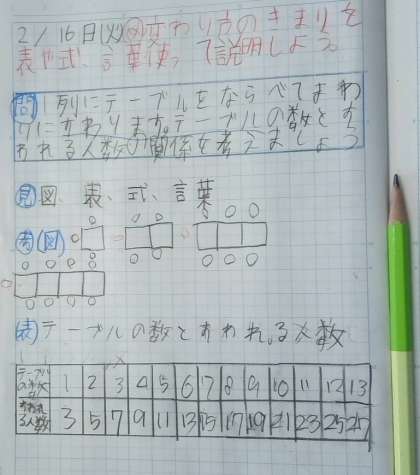 2/16日(火)め変わり方のきまりを
表や式、言葉使って説明しよう。
問1列にテーブルをならべてまわ
りにすわります。テーブルの数とす
われる人数の関係を考えましょう
見図、表、式、言葉
考(図)
(表)テーブルの数とすわれる人数
テーブルの数 1 2 3 4 5 6 7 8 9 10 11 12 13
すわれる人数 3 5 7 9 11 13 15 17 19 21 23 25 27